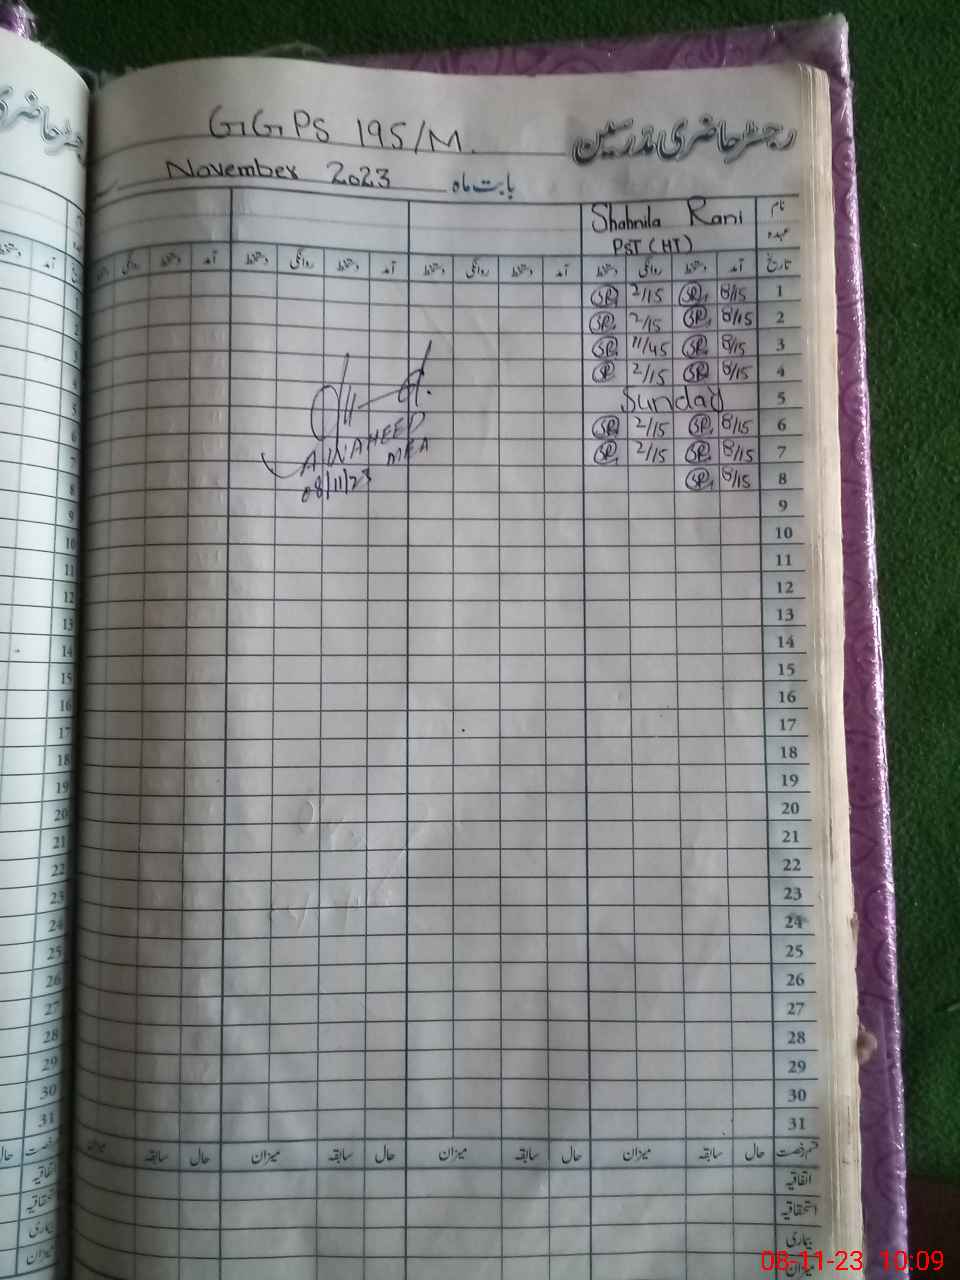 GGPS 195/M.
رجسٹر حاضری مدرسین
بابت ماہ November 2023
نام Shahnila Rani
عہدہ PST (HT)
تاریخ آمد دستخط روانگی دستخط آمد دستخط روانگی دستخط آمد دستخط روانگی دستخط آمد دستخط روانگی
1 8/15 SR 2/15 SR
2 8/15 SR 2/15 SR
3 8/15 SR 11/45 SR
4 8/15 SR 2/15 SR
5 Sunday
6 8/15 SR 2/15 SR
7 8/15 SR 2/15 SR
8 8/15 SR
MEA
08/11/23
9
10
11
12
13
14
15
16
17
18
19
20
21
22
23
24
25
26
27
28
29
30
31
قسم رخصت حال سابقہ میزان حال سابقہ میزان حال سابقہ میزان حال سابقہ میزان
اتفاقیہ
استحقاقیہ
بیماری
میزان
08-11-23 10:09